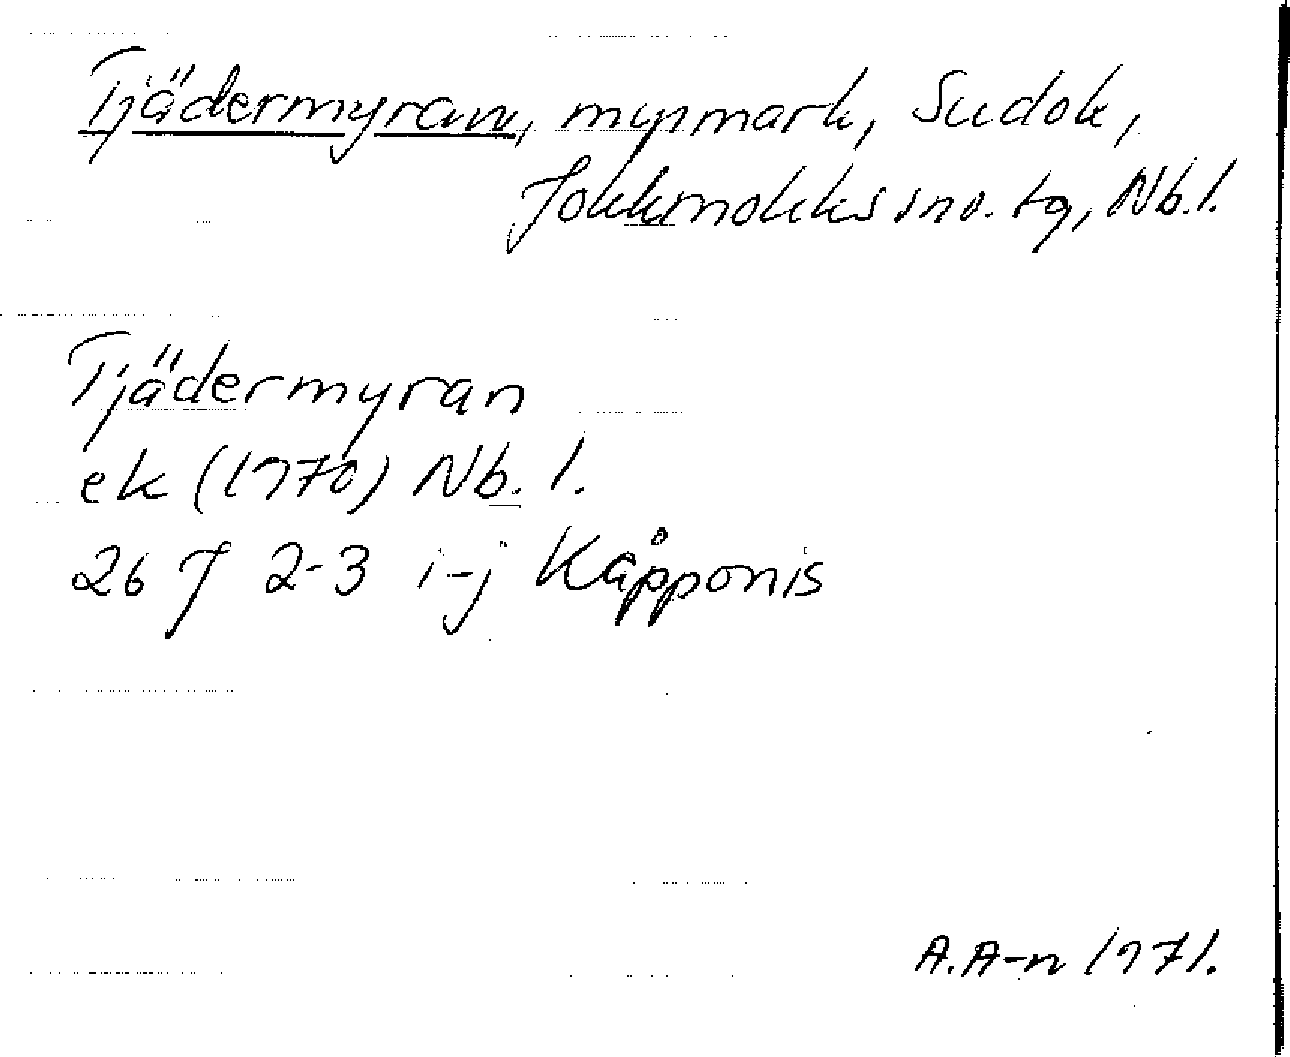 Tjädermyran, myrmark, Sudok,
Jokkmokks sn o. tg, Nb.l.
Tjädermyran
ek (1970) Nb. l.
26 J 2-3 i-j Kåpponis
A.A-n 1971.